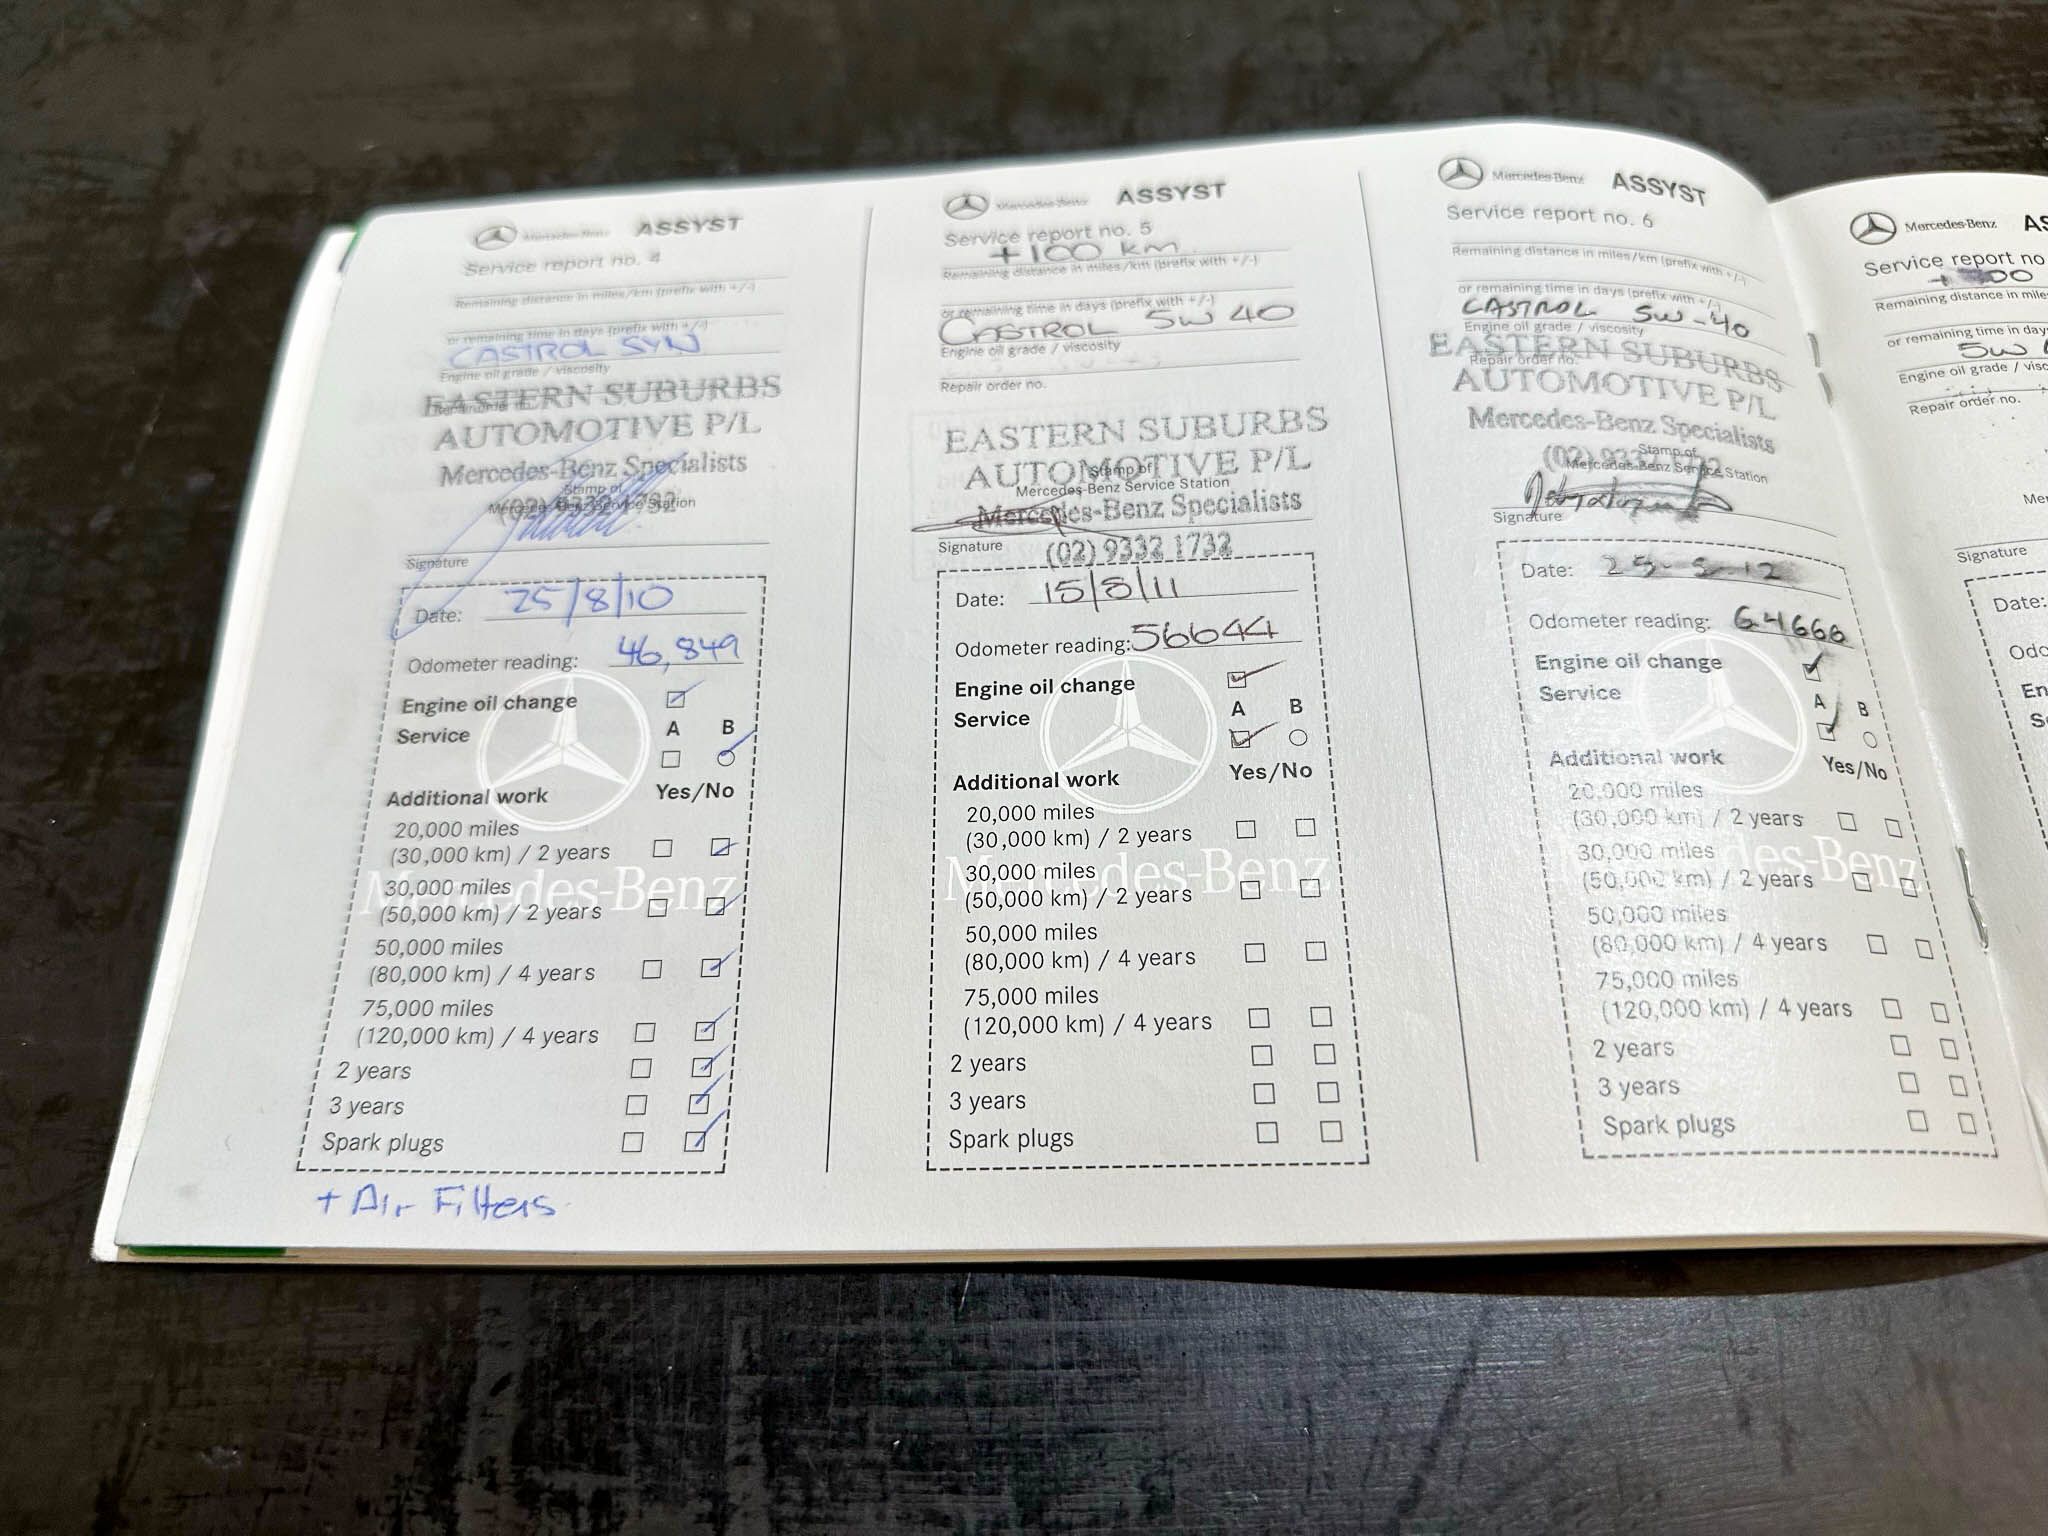 Mercedes-Benz ASSYST
Service report no. 4
Remaining distance in miles/km (prefix with +/-)
or remaining time in days (prefix with +/-)
CASTROL SYN
Engine oil grade / viscosity
EASTERN SUBURBS
AUTOMOTIVE P/L
Mercedes-Benz Specialists
Stamp of
Mercedes-Benz Service Station
(02) 9332 1732
Signature
Date: 25/8/10
Odometer reading: 46,849
Engine oil change
A B
Service
Additional work Yes/No
20,000 miles
(30,000 km) / 2 years
30,000 miles
(50,000 km) / 2 years
50,000 miles
(80,000 km) / 4 years
75,000 miles
(120,000 km) / 4 years
2 years
3 years
Spark plugs
+ Air Filters
Mercedes-Benz
Mercedes-Benz ASSYST
Service report no. 5
+100 km
Remaining distance in miles/km (prefix with +/-)
or remaining time in days (prefix with +/-)
CASTROL 5W 40
Engine oil grade / viscosity
Repair order no.
EASTERN SUBURBS
AUTOMOTIVE P/L
Stamp of
Mercedes-Benz Service Station
Mercedes-Benz Specialists
Signature
(02) 9332 1732
Date: 15/8/11
Odometer reading: 56644
Engine oil change
A B
Service
Additional work Yes/No
20,000 miles
(30,000 km) / 2 years
30,000 miles
(50,000 km) / 2 years
50,000 miles
(80,000 km) / 4 years
75,000 miles
(120,000 km) / 4 years
2 years
3 years
Spark plugs
Mercedes-Benz
Mercedes-Benz ASSYST
Service report no. 6
Remaining distance in miles/km (prefix with +/-)
or remaining time in days (prefix with +/-)
CASTROL 5W-40
Engine oil grade / viscosity
Repair order no.
EASTERN SUBURBS
AUTOMOTIVE P/L
Mercedes-Benz Specialists
Stamp of
(02) 9332 1732
Mercedes-Benz Service Station
Signature
Date: 25-5-12
Odometer reading: 64666
Engine oil change
Service
A B
Additional work Yes/No
20,000 miles
(30,000 km) / 2 years
30,000 miles
(50,000 km) / 2 years
50,000 miles
(80,000 km) / 4 years
75,000 miles
(120,000 km) / 4 years
2 years
3 years
Spark plugs
Mercedes-Benz
Mercedes-Benz
Service report no
Remaining distance in mile
or remaining time in day
5W
Engine oil grade / visc
Repair order no.
Signature
Date: